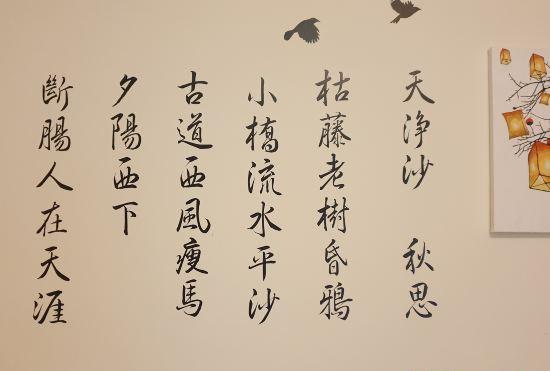 天浄沙 秋思
枯藤老樹昏鴉
小橋流水平沙
古道西風瘦馬
夕陽西下
斷腸人在天涯